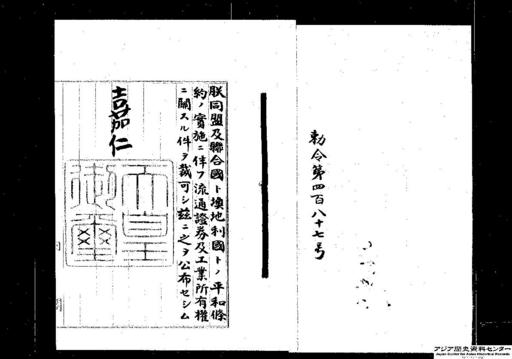 勅令第四百八十七号
朕同盟及聯合國ト墺地利國トノ平和條
約ノ實施ニ伴フ流通證券及工業所有權
ニ關スル件ヲ裁可シ茲ニ之ヲ公布セシム
嘉仁
天皇
御璽
アジア歴史資料センター
Japan Center for Asian Historical Records